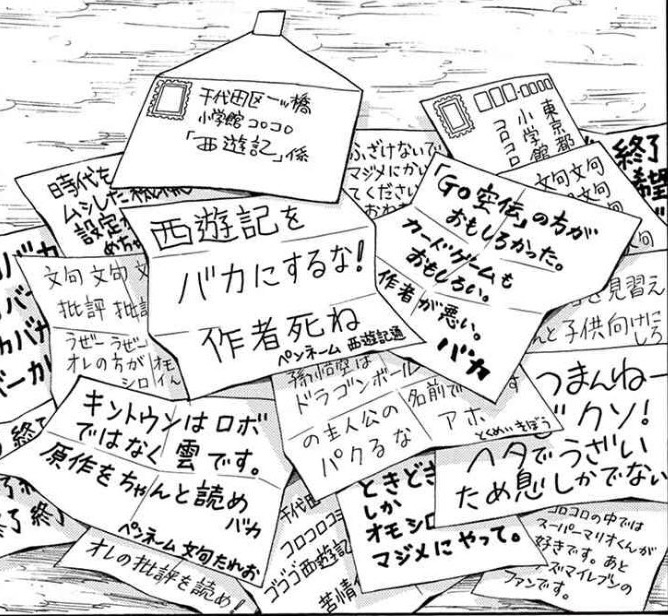 千代田区一ッ橋
小学館コロコロ
「西遊記」係
東京都
小学館
コロコロ
ふざけないで
マジメにかい
てください
おわ
終了
希望
時代を
ムシした
設定
めちゃ
西遊記を
バカにするな!
作者死ね
ペンネーム 西遊記通
「GO空伝」の方が
おもしろかった。
カードゲームも
おもしろい。
作者が悪い。
バカ
文句文句
文句文句
文句文句
バカ
バカ
カバカ
ーカ
文句 文句 文
批評 批評
うぜーうぜー
オレの方が オモ
シロ いん
を見習え
んと子供向けに
しろ
孫悟空は
ドラゴンボール
の主人公の 名前です
パクるな アホ
とくめいきぼう
つまんねー
クソ!
ヘタでうざい
ため息しかでない
キントウンはロボ
ではなく雲です。
原作をちゃんと読め
バカ
ペンネーム 文句たれお
終了
終了
終了 終
オレの批評を読め!
千代田
小学館
コロコロコミ
ゴゴゴ西遊記
苦情
ときどき
しか
オモシロ
マジメにやって。
コロコロの中では
スーパーマリオくんが
好きです。あと
ズマイレブンの
ファンです。